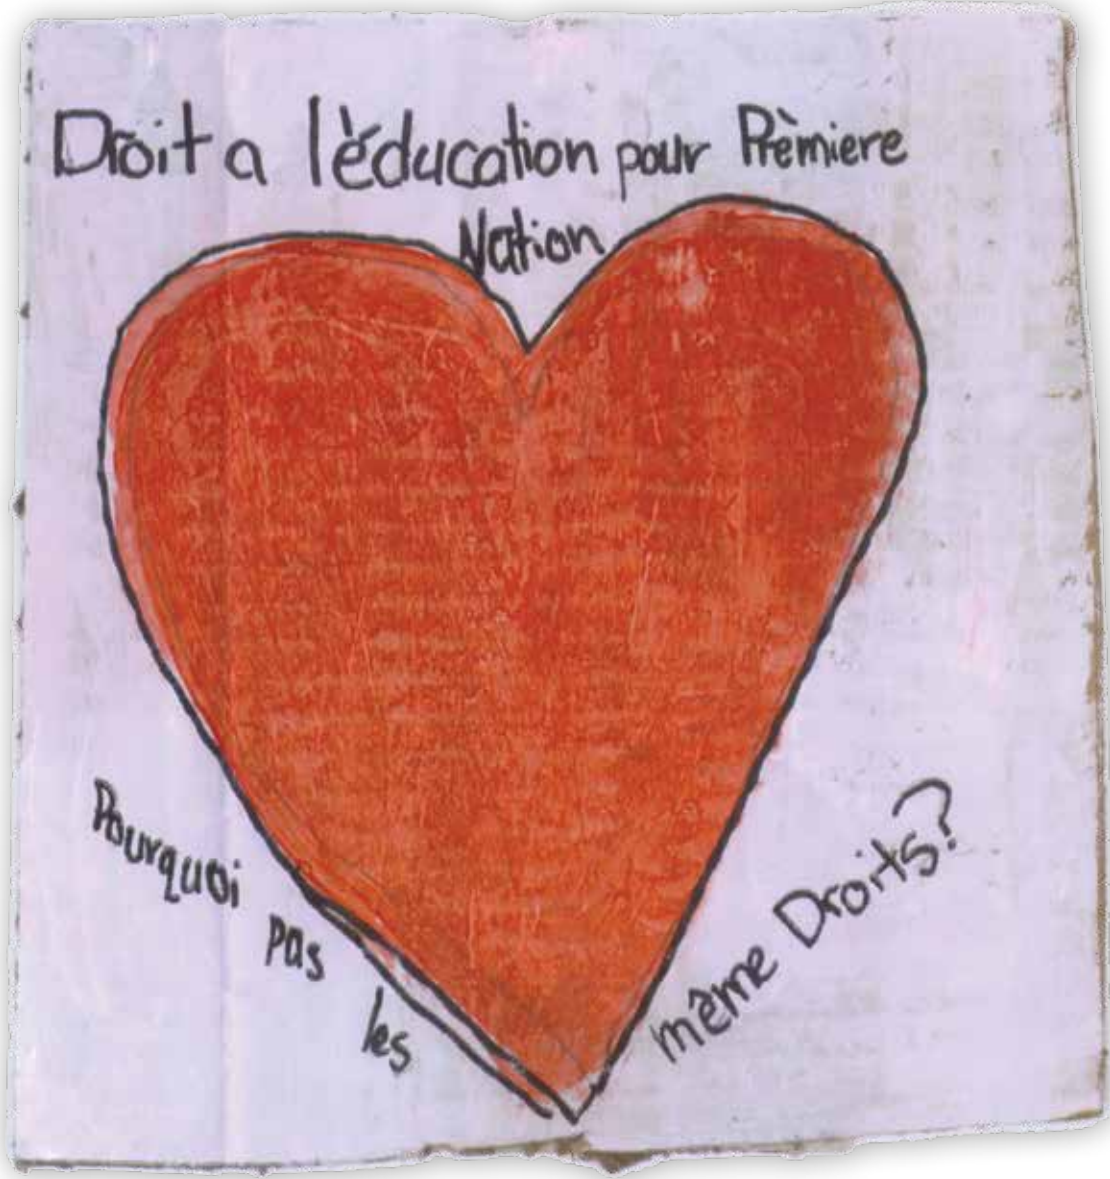 Droit a l'èducation pour Prèmiere
Nation
Pourquoi pas les
même Droits?